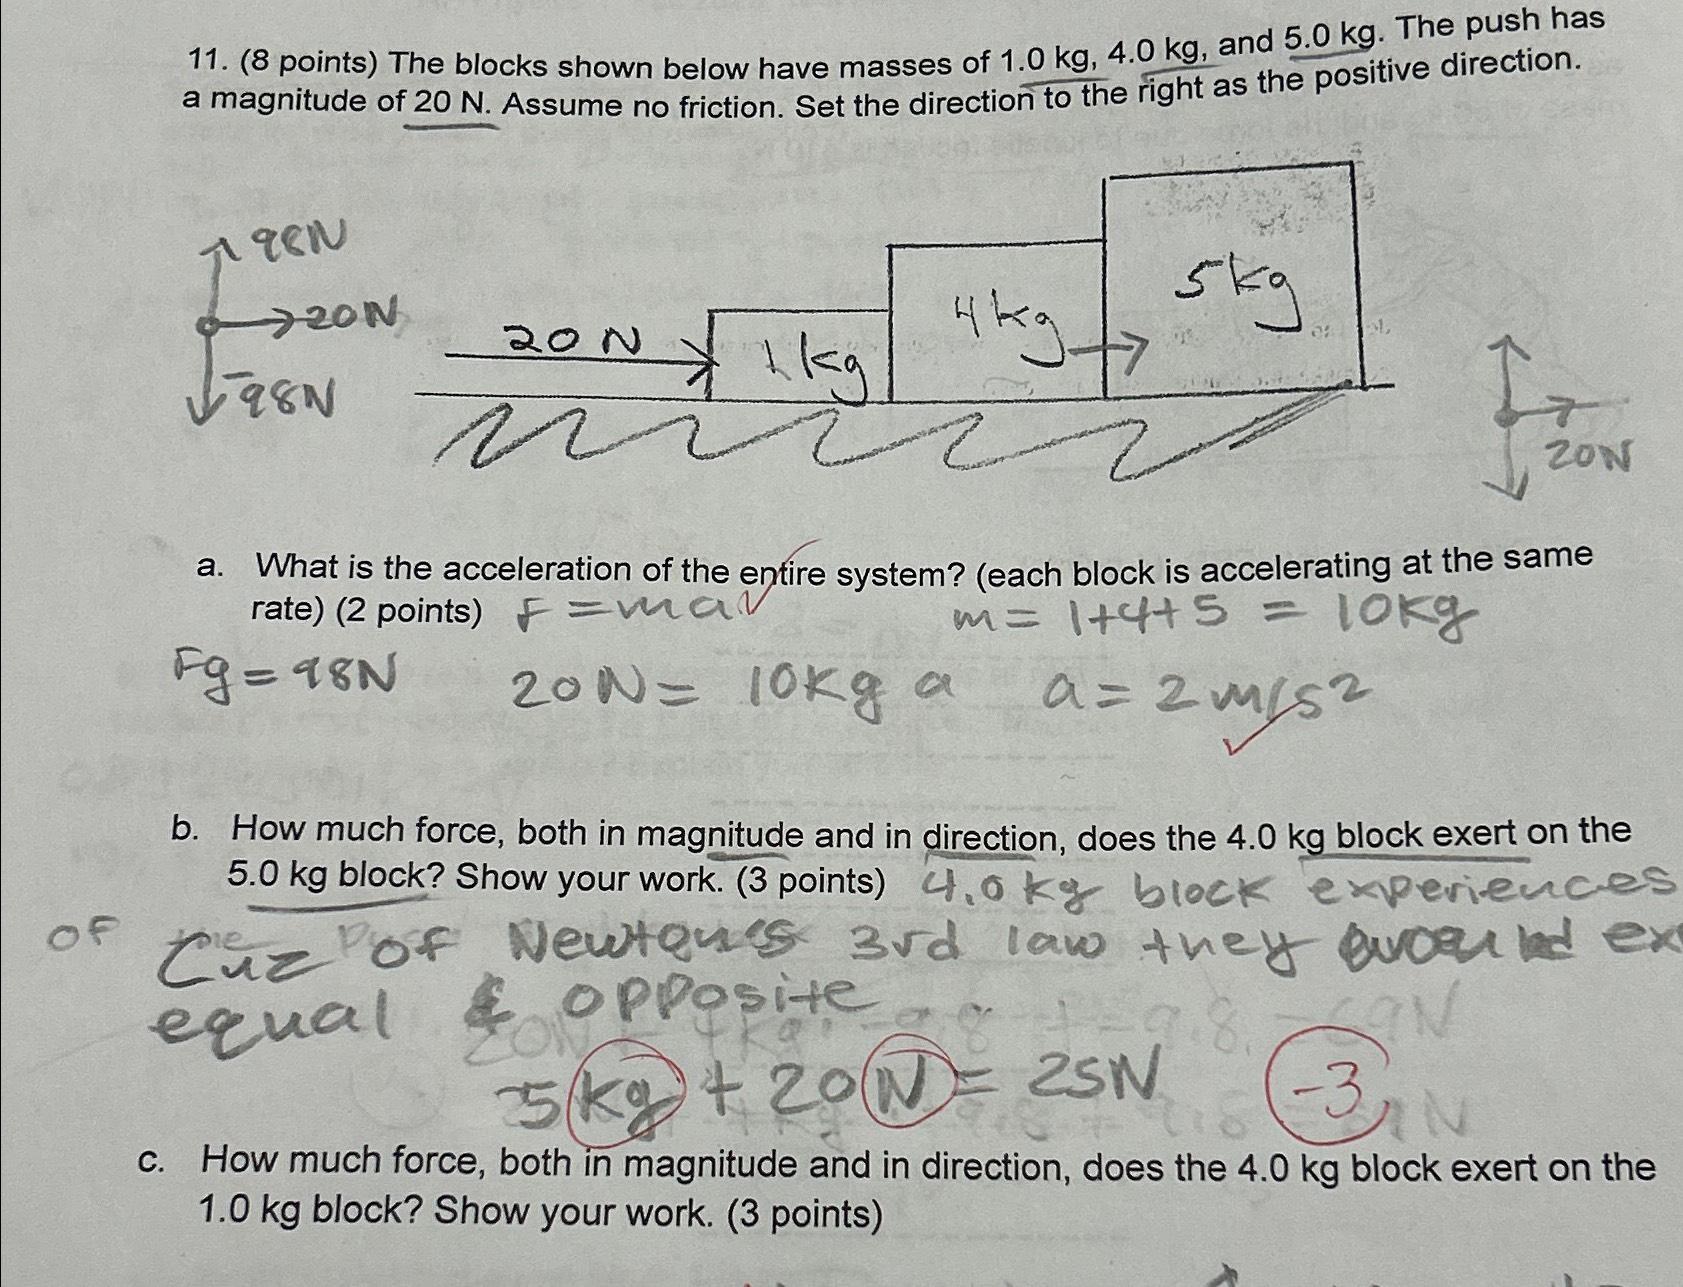 11. (8 points) The blocks shown below have masses of 1.0 kg, 4.0 kg, and 5.0 kg. The push has
a magnitude of 20 N. Assume no friction. Set the direction to the right as the positive direction.
98N
20N
-98N
20 N
1 kg
4 kg
5 kg
20N
a. What is the acceleration of the entire system? (each block is accelerating at the same
rate) (2 points) F = ma m = 1+4+5 = 10kg
Fg = 98N 20N = 10kg a a = 2 m/s2
b. How much force, both in magnitude and in direction, does the 4.0 kg block exert on the
5.0 kg block? Show your work. (3 points) 4.0 kg block experiences
of Cuz of Newton's 3rd law they would ex
equal & opposite
5kg + 20N = 25N -3
c. How much force, both in magnitude and in direction, does the 4.0 kg block exert on the
1.0 kg block? Show your work. (3 points)